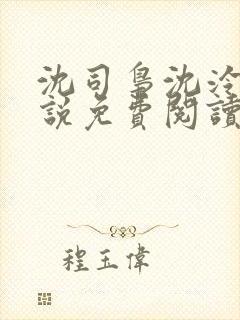 沈司梟沈泠
說免費閱讀
程玉偉